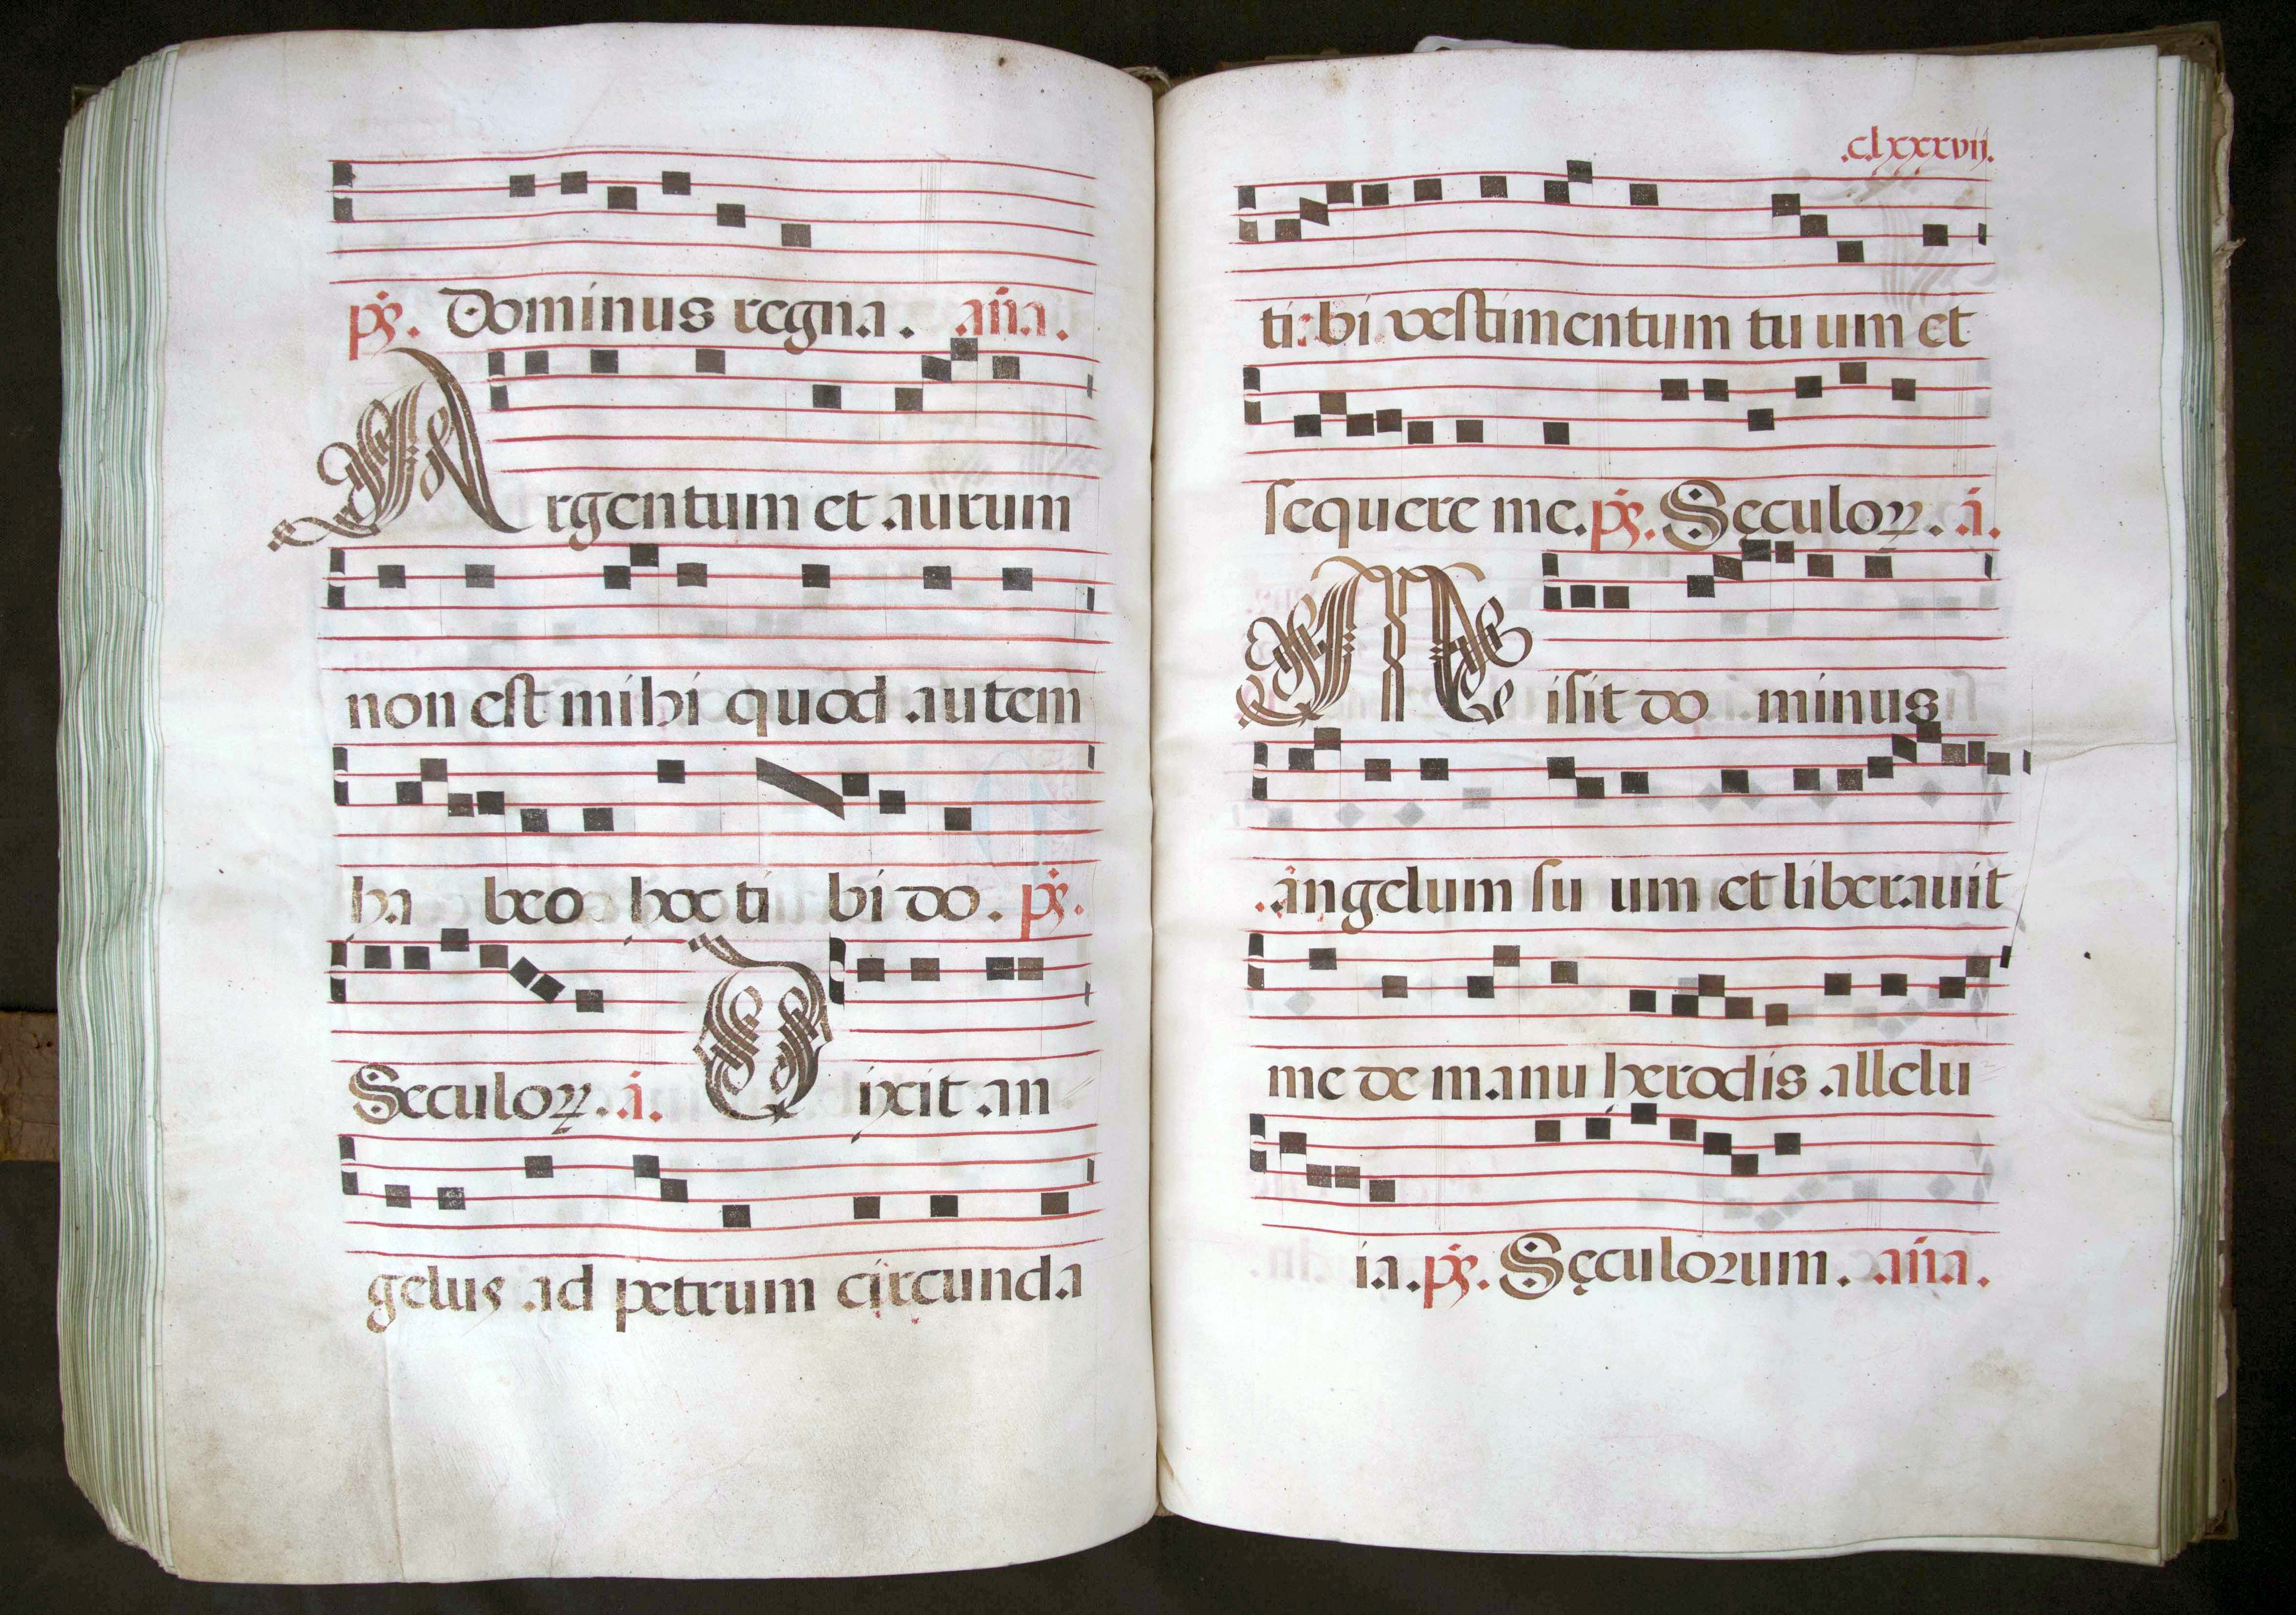 ps. Dominus regna. aña.
Argentum et aurum
non est mihi quod autem
ha beo hoc ti bi do. ps.
Seculoꝝ. á. Dixit an
gelus ad petrum circunda
.clxxxvii.
ti: bi vestimentum tu um et
sequere me. ps. Sęculoꝝ. á.
Misit do minus
angelum su um et liberauit
me de manu herodis allelu
ia. ps. Sęculorum. aña.